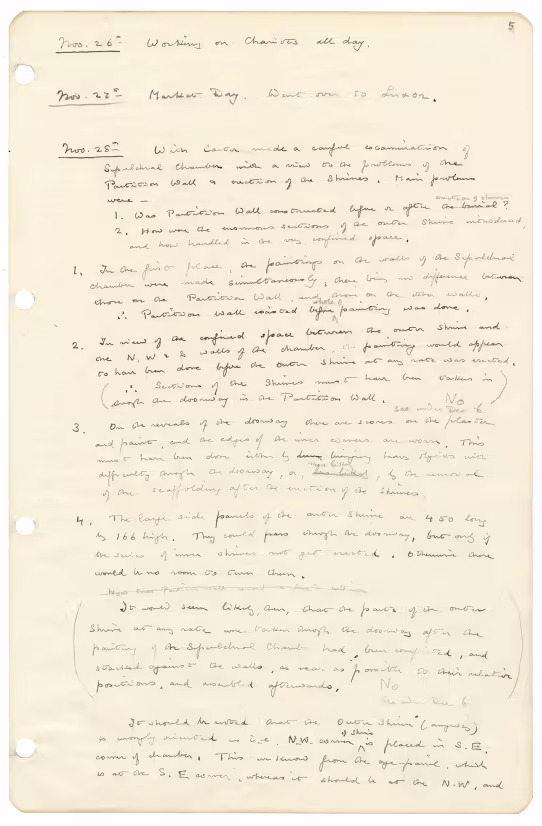 5
Nov. 26th Working on Chariots all day.
Nov. 27th Market Day. Went over to Luxor.
Nov. 28th With Carter made a careful examination of
Sepulchral Chamber with a view to the problems of the
Partition Wall & erection of the Shrines. Main problems
were —
erection of shrines
1. Was Partition Wall constructed before or after the burial?
2. How were the enormous sections of the outer Shrine introduced,
and how handled in the very confined space.
1. In the first place, the paintings on the walls of the Sepulchral
chamber were made simultaneously, there being no difference between
those on the Partition Wall, and those on the other walls.
whole of
∴ Partition Wall existed before painting was done.
2. In view of the confined space between the outer Shrine and
the N, W & walls of the chamber, painting would appear
to have been done before the outer Shrine at any rate was erected.
(∴ Sections of the Shrines must have been taken in
through the doorway in the Partition Wall.) No
see under Dec 6
3. On the reveals of the doorway there are scores on the plaster
and paint, and the edges of the inner corners are worn. This
must have been done either by bringing heavy objects with
more likely
difficulty through the doorway, or, by the removal
of the scaffolding after the erection of the shrines.
4. The large side panels of the outer Shrine are 450 long
by 166 high. They could pass through the doorway, but only if
the series of inner shrines not yet erected. Otherwise there
would be no room to turn them.
(It would seem likely, then, that the parts of the outer
Shrine at any rate were taken through the doorway after the
painting of the Sepulchral Chamber had been completed, and
stacked against the walls, as near as possible to their relative
positions, and assembled afterwards.) No
see under Dec 6
It should be noted that the Outer Shrine (anyway)
is wrongly oriented as i.e. N.W. corner of Shrine is placed in S.E.
corner of chamber. This we know from the eye-panel, which
is at the S.E. corner, whereas it should be at the N.W., and